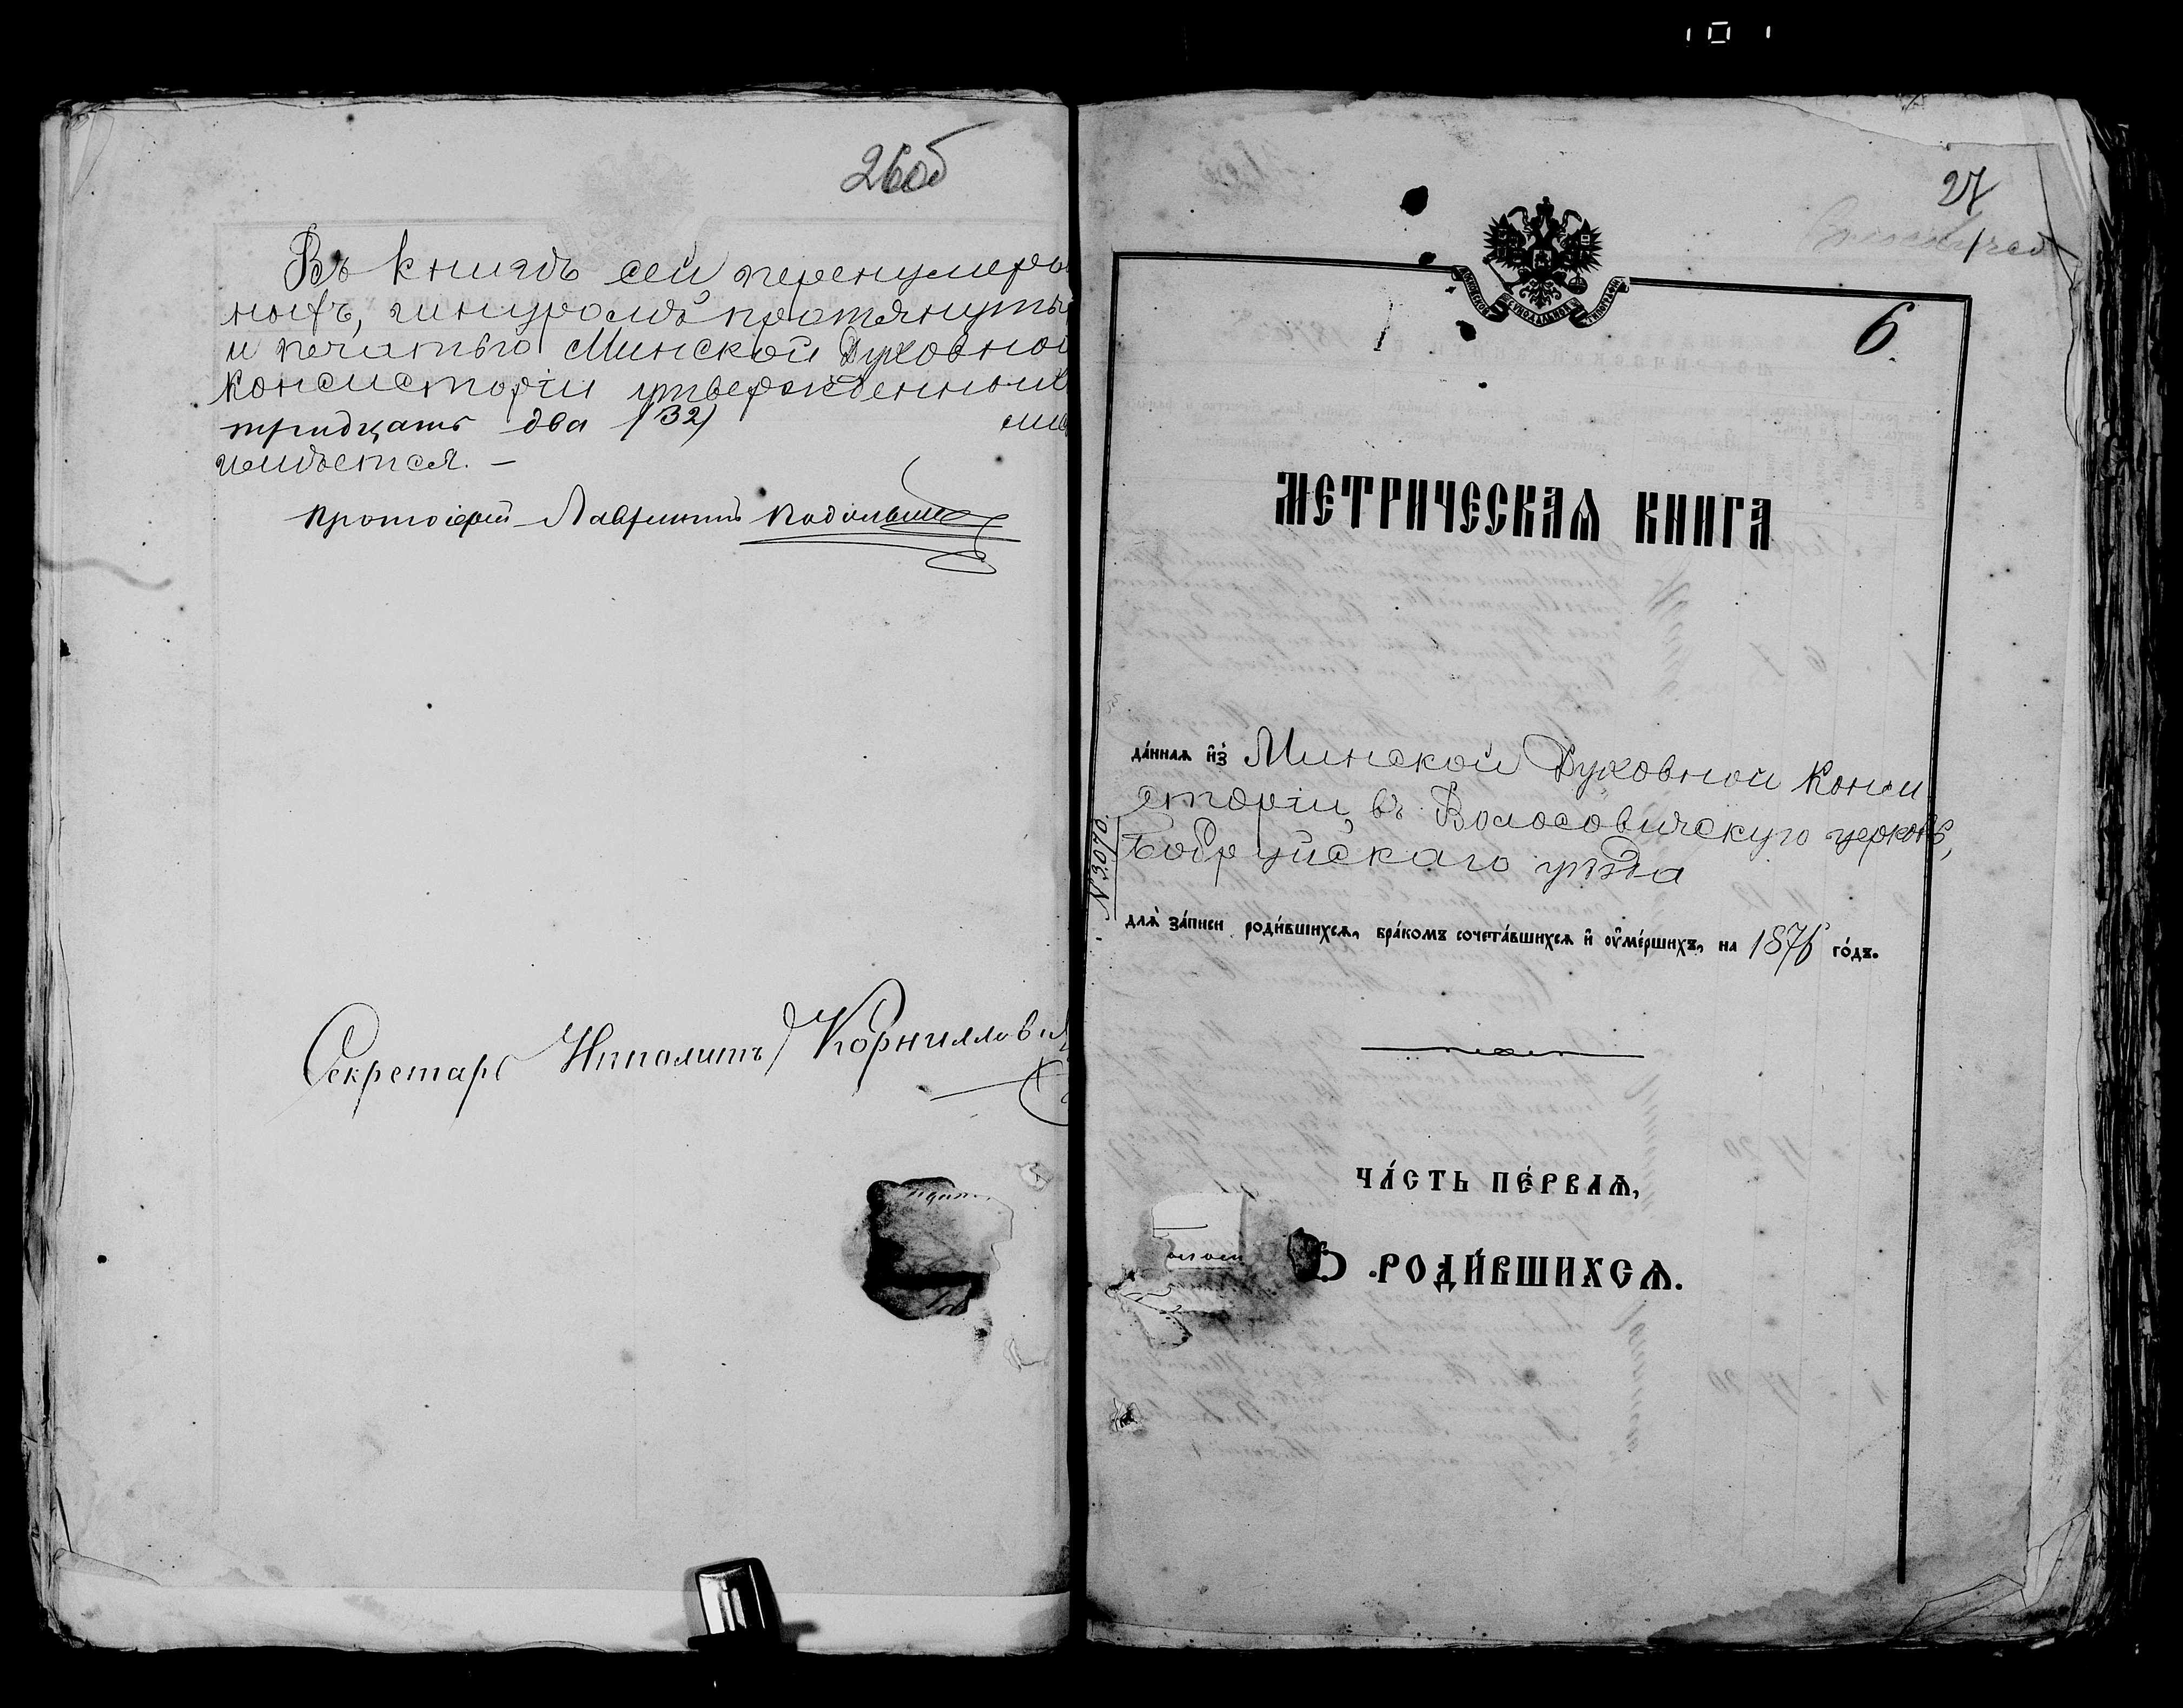 26об
Въ книгѣ сей перенумеро
ныхъ, шнуромъ протянуты
и печатью Минской Духовной
Консисторіи утвержденныхъ
тридцать два /32/ лис
имѣется. –
Протоіерей Лаврентій
Секретарь Ипполитъ Корнилови
27
6.
МОСКОВСКОЙ СѴНОДАЛЬНОЙ ТИПОГРАФІИ
МЕТРИЧЕСКАѦ КНИГА
да́ннаѧ и҆з̾ Минской Духовной Конси
сторіи, въ Волосовичскую церковь,
Бобруйскаго уѣзда
№ 3070.
длѧ̀ за́писи роди́вшихсѧ, бра́комъ сочета́вшихсѧ и҆ ᲂу҆ме́ршихъ, на 1876 го́дъ.
ЧА́СТЬ ПЕ́РВАѦ,
Ѽ РОДИ́ВШИХСѦ.